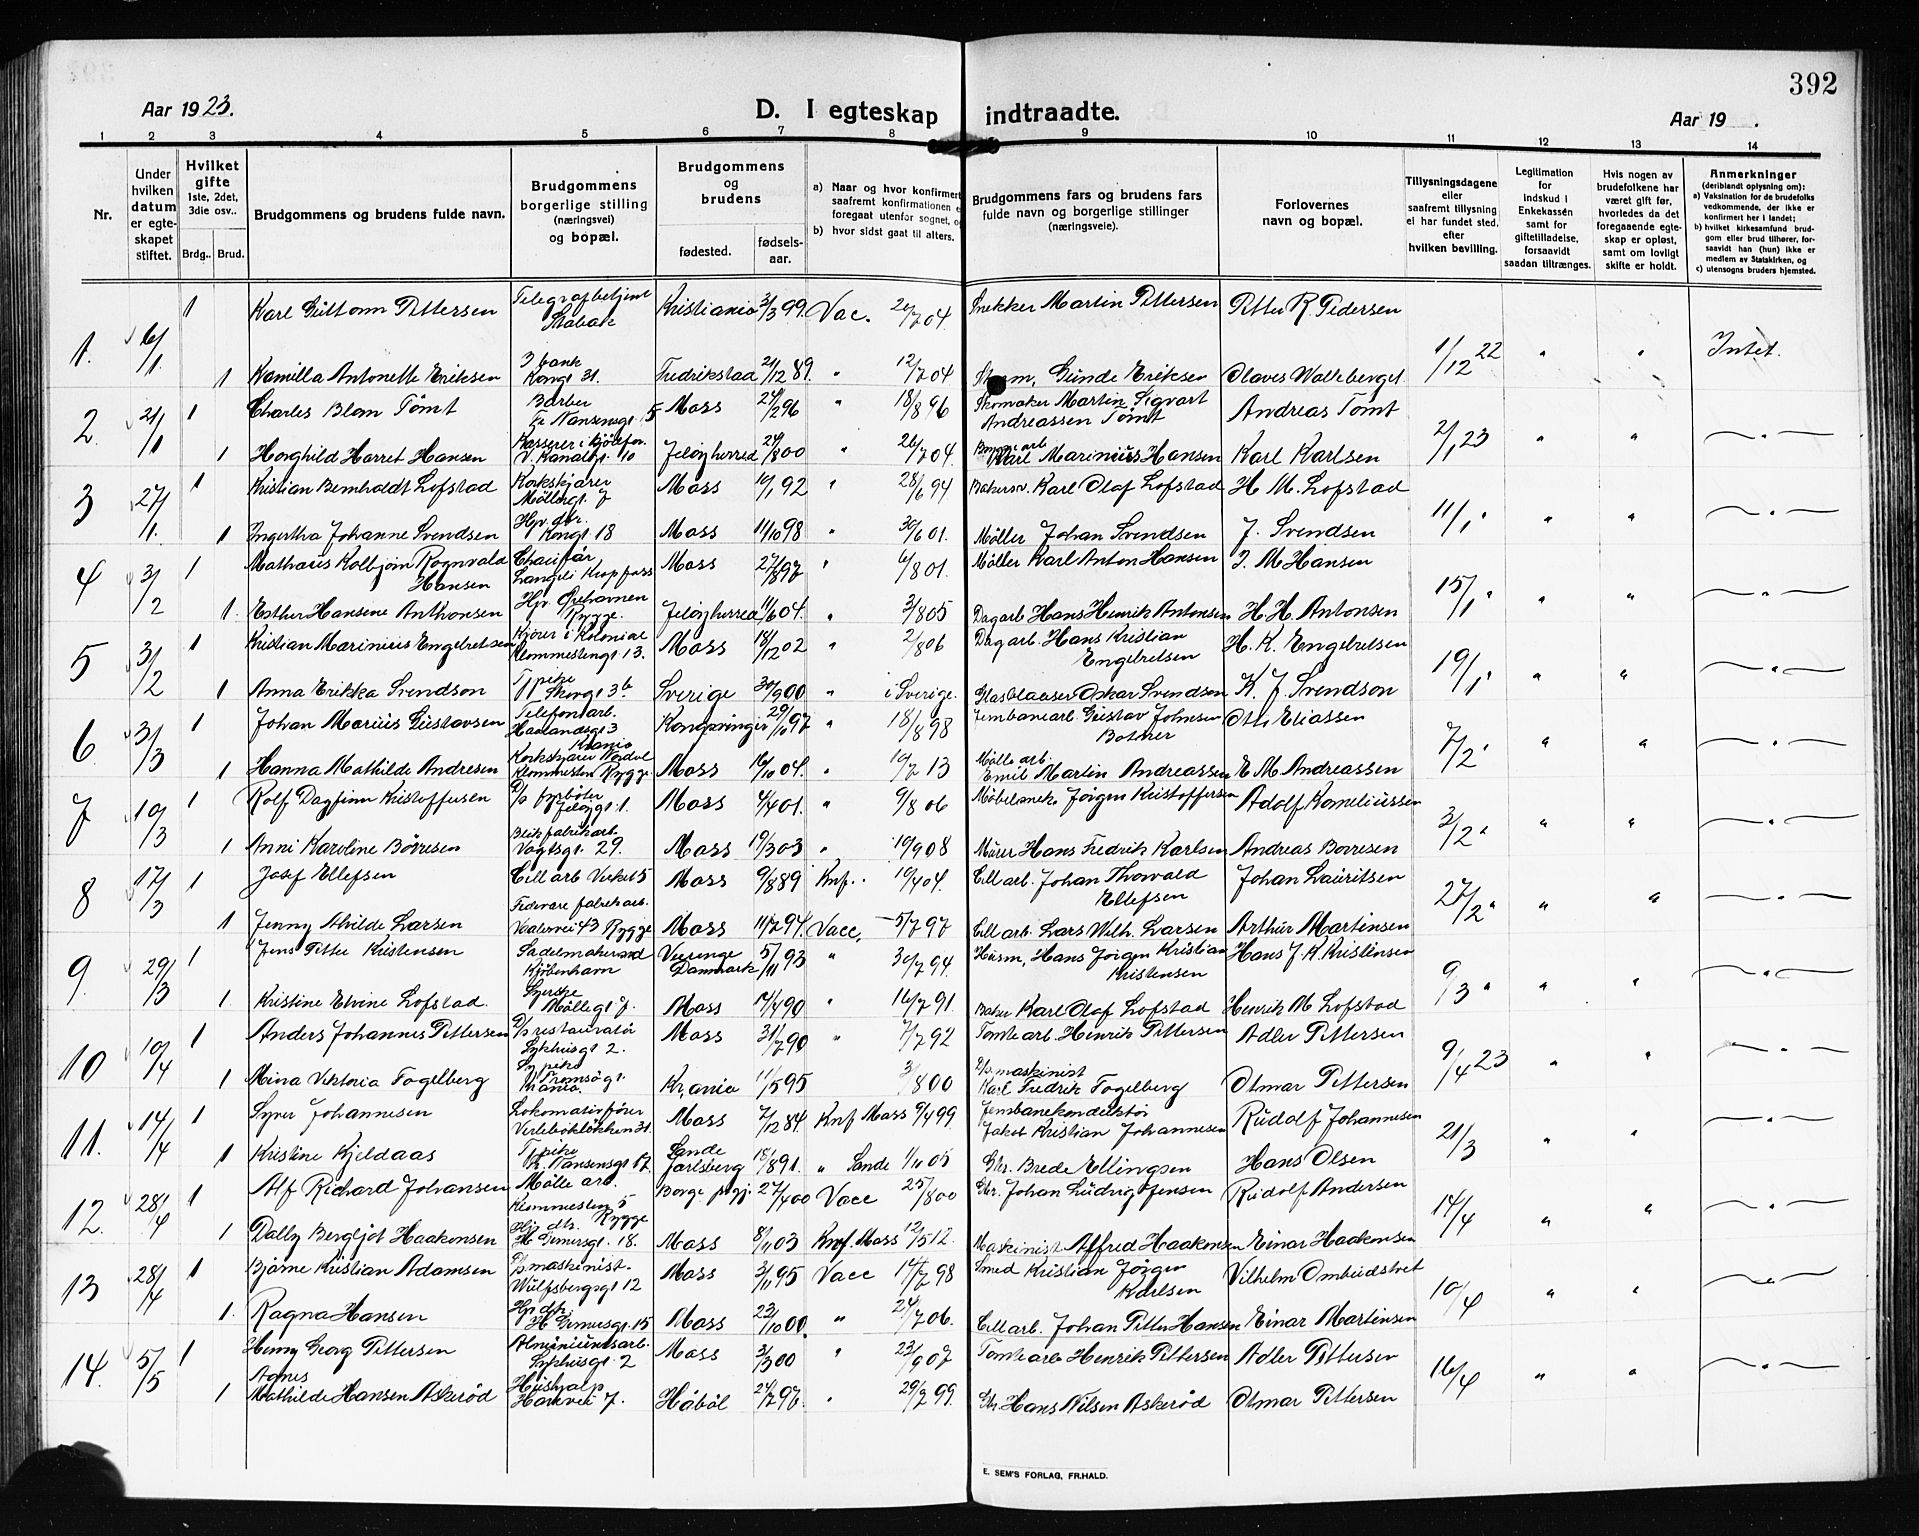 392
Aar 1923.
D. I egteskap indtraadte.
Aar 19 .
1 2 3 4 5 6 7 8 9 10 11 12 13 14
Nr.
Under hvilken datum er egteskapet stiftet.
Hvilket gifte 1ste, 2det, 3die osv..
Brdg.. Brud.
Brudgommens og brudens fulde navn.
Brudgommens borgerlige stilling (næringsvei) og bopæl.
Brudgommens og brudens
fødested.
fødsels-aar.
a) Naar og hvor konfirmert saafremt konfirmationen e foregaat utenfor sognet, og
b) hvor sidst gaat til alters.
Brudgommens fars og brudens fars fulde navn og borgerlige stillinger (næringsveie).
Forlovernes navn og bopæl.
Tillysningsdagene eller saafremt tillysning ei har fundet sted, efter hvilken bevilling.
Legitimation for indskud i Enkekassén samt for giftetilladelse, forsaavidt saadan tiltrænges.
Hvis nogen av brudefolkene har været gift før, hvorledes da det foregaaende egteskap er opløst, samt om lovligt skifte er holdt.
Anmerkninger (deriblandt oplysning om):
a) Vaksination for de brudefolks vedkommende, der ikke er konfirmert her i landet;
b) hvilket kirkesamfund brudgom eller brud tilhører, forsaavidt han (hun) ikke er medlem av Statskirken, og
c) utensogns bruders hjemsted.
1. 6/1 1 Karl Guttorm Pettersen Telegrafbetjent Stabæk Kristiania 3/3 99 Vac. 20/7 04 Snekker Martin Pettersen Petter R. Pedersen
1 Kamilla Antonette Eriksen 3 bank Kongsgt 31. Fredrikstad 21/12 89. " 12/7 04 Gunde Eriksen Olaves Walleberget 1/12 22 " " Intet.
2. 21/1 1 Charles Blom Tømt Barber Fr. Nansensgt 5 Moss 24/2 96 " 18/8 96 Skomaker Martin Sigvart Andreassen Tømt Andreas Tømt
1 Horghild Harret Hansen V. Kanalgt. 10 Jeløyherred 24/8 00 " 26/7 04. Karl Marinius Hansen Karl Karlsen 2/1 23 " "
3 27/1. 1 Kristian Bernholdt Lofstad Korkskjærer Møllergt. 7 Moss 10/1 92 " 28/6 94 Karl Olaf Lofstad H. M. Lofstad
1 Ingertha Johanne Svendsen Hpr. dtr. Kongsgt 18 Moss 11/10 98 30/6 01. Møller Johan Svendsen J. Svendsen 11/1 " "
4 3/2 1 Mathæus Kolbjørn Rognvald Hansen Chauffør Moss 27/8 97 " 6/8 01. Møller Karl Anton Hansen J. M. Hansen
1. Esther Hansine Anthonsen Rygge. Jeløyherred 11/6 04. " 3/8 05 Dagarb Hans Henrik Antonsen H. H. Antonsen 15/1 " "
5 3/2 1 Kristian Marinius Engebretsen Kjører i Kolonial Klommestengt 13. Moss 18/12 02 " 2/8 06 Dagarb. Hans Kristian Engebretsen H. K. Engebretsen
1 Anna Erikka Svendson Skovgt 3b Sverige 30/9 00 " i Sverige. Glasblaaser Oskar Svendsen K. J. Svendson 19/1 " "
6 3/3 1 Johan Marius Gustavsen Telefonarb. Haslandsgt 3 Krania Kongsvinger 29/10 97 " 18/8 98 Jernbanearb. Gustav Johnsen Botner Otto Eliassen
1 Hanna Mathilde Andresen Klommesten Rygge Moss 16/10 04. " 19/7 13 Mølle arb. Emil Martin Andreassen E. M. Andreassen 7/2 " "
7 10/3 1 Rolf Dagfinn Kristoffersen D/s fyrbøter Jeløygt. 1. Moss 4/4 01. " 9/8 06 Møbelsnek. Jørgen Kristoffersen Adolf Korneliussen
1 Anni Karoline Børresen Blikfabrikarb. Vogtsgt. 29. Moss 19/3 03 " 10/9 08 Murer Hans Fredrik Karlsen Andreas Børresen 3/2 " "
8 17/3 1 Josef Ellefsen Cell arb Verket 5 Moss 9/8 89 Knf. 10/4 04. Cell arb. Johan Thorvald Ellefsen Johan Lauritsen
1 Jenny Alvilde Larsen Fedevare fabrik arb. Vaalervei 43 Rygge Moss 11/2 94. Vacc. 5/7 97 Cell arb. Lars Wilh. Larsen Arthur Martinsen 27/2 " "
9. 29/3 1 Jens Petter Kristensen Sadelmakersvend Kjøbenhavn Danmark 5/11 93 " 30/7 94 Husm. Hans Jørgen Kristian Kristensen Hans J. K. Kristensen
1. Kristine Elvine Lofstad. Syerske Møllegt 7. Moss 17/4 90 " 16/7 91. Baker Karl Olaf Lofstad Henrik M Lofstad 9/3 " "
10 10/4 1 Anders Johannes Pettersen D/s restauratør Sykhusgt 2. Moss 31/7 90 " 7/7 92 Tomtearb. Henrik Pettersen Adler Pettersen
1 Mina Viktoria Fogelberg Sypike Tromsøgt. Krania. Kr.ania 11/5 95 3/8 00 D/s maskinist Karl Fredrik Fogelberg Otmar Pettersen 9/4 23 " "
11. 14/4 1 Syver Johannesen Lokomotivfører Verlebøkløkken 31. Moss 7/12 84. Knf Moss 9/4 99 Jernbanekonduktør Jakob Kristian Johannesen Rudolf Johannesen
1 Kristine Kjeldaas Fr. Nansensgt 17. Sande Jarlsberg 18/8 91. " Sande 1/11 05 Gbr. Brede Ellingsen Hans Olsen 21/3 " "
12. 28/4 1 Alf Richard Johansen Mølle arb. Klommesten 5 Rygge Borge p.gj. 27/4 00 Vacc 25/8 00 Gbr. Johan Ludvig Jensen Rudolf Andersen
1 Dally Bergljot Haakonsen Hj. dtr. H Gernersgt. 18. Moss 8/11 03 Knf. Moss 12/5 12. Maskinist Alfred Haakonsen Einar Haakonsen 14/4 " "
13 28/4 1 Bjarne Kristian Adamsen D/s maskinist. Wulfsbergsgt 12 Moss 3/11 95 Vacc 14/7 98 Smed Kristian Jørgen Karlsen Vilhelm Ombudstvet
1. Ragna Hansen Hp. dtr. H Gernersgt. 15 Moss 23/10 00. " 24/7 06. Cell arb. Johan Petter Hansen Einar Martinsen 10/4 " "
14. 5/5 1 Henry Georg Pettersen Alminiumsarb. Sykhusgt 2 Moss 3/3 00 " 23/9 07 Tomtearb Henrik Pettersen Adler Pettersen
1 Agnes Mathilde Hansen Askerød Hushjælp Havnvei 7. Høbøl 24/7 97. " 29/7 99. Gbr. Hans Nilsen Askerød Otmar Pettersen 16/4 " "
E. SEM'S FORLAG, FR.HALD.